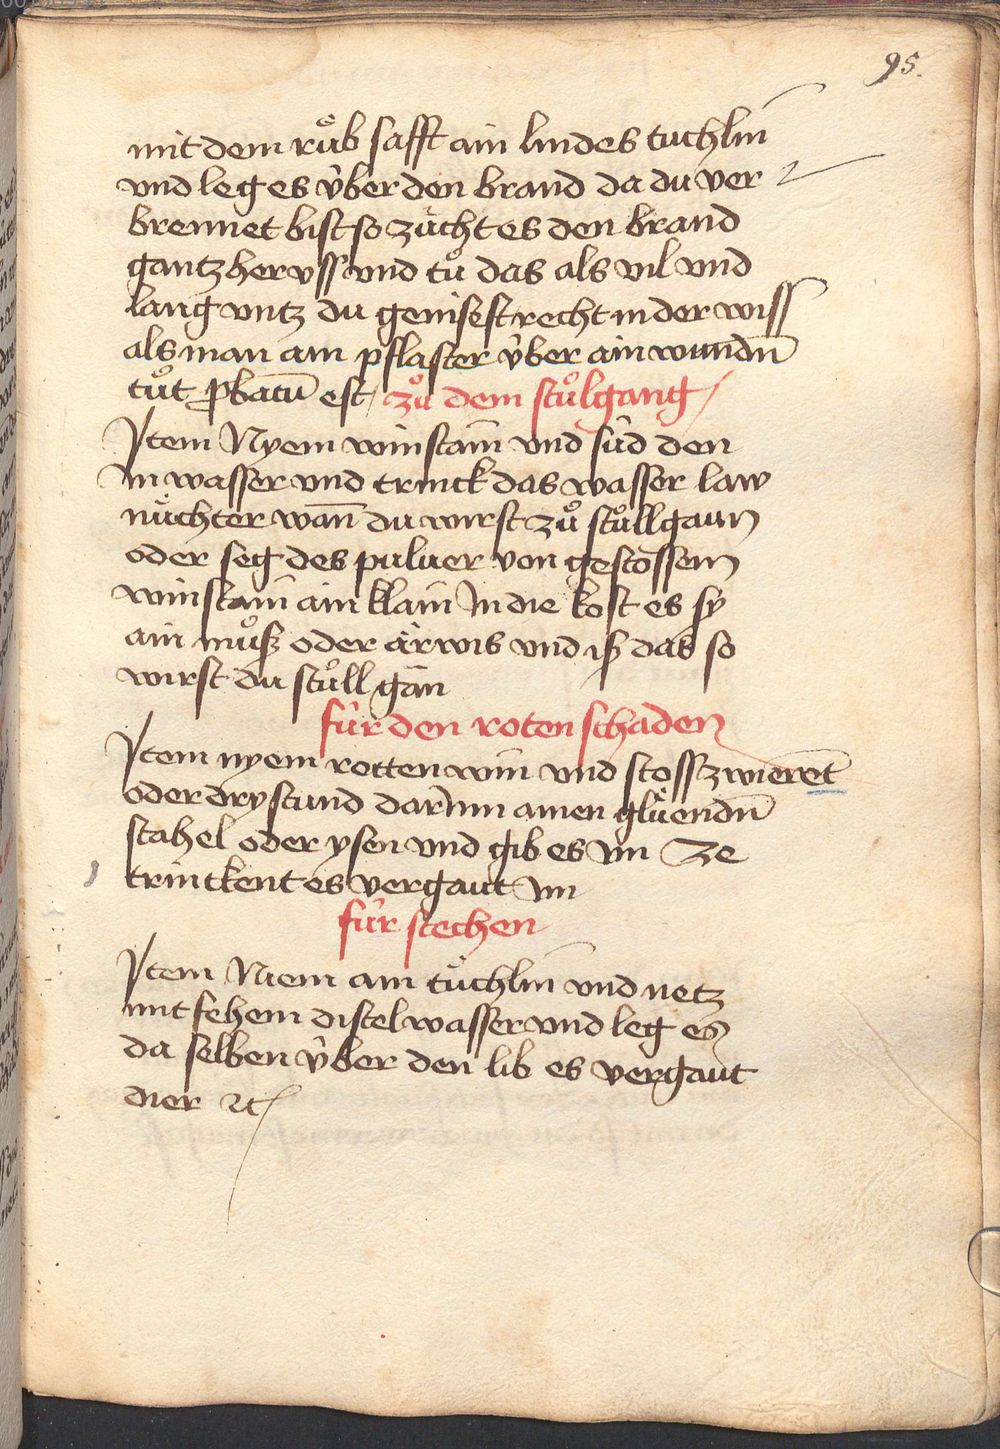 95.
mit dem ruͦb safft ain lindes tuchlin
vnd leg es v̂ber den brand da du ver
brennet bist so zücht es den brand
gantz her vss vnd tuͦ das als vil vnd
lang vntz du genisest recht in der wiss
als man ain pflaster v̂ber ain wundn̄
tuͦt ꝓbatū est / zuͦ dem stuͦlgang /
Item Nyem winstain vnd sûd den
In wasser vnd trinck das wasser law
nüchter wan̄ du wirst zuͦ stuͦllgaun
oder seg des puluer von gestossem
winstain ain klain In die kost es sy
ain muͦß oder ärwis vnd iß das so
wirst du stuͦll gan
fûr den roten schaden
Item nyem rotten win vnd stoss zwierēt
oder drystund darīnn ainen glüendn̄
stahel oder ysen vnd gib es im ze
trinckent es vergaut im
fûr stechen
Item Niem ain tüchlin vnd netz
mit fehem distelwasser vnd leg es
da selben v̂ber den lib es vergaut
dier ⁊c